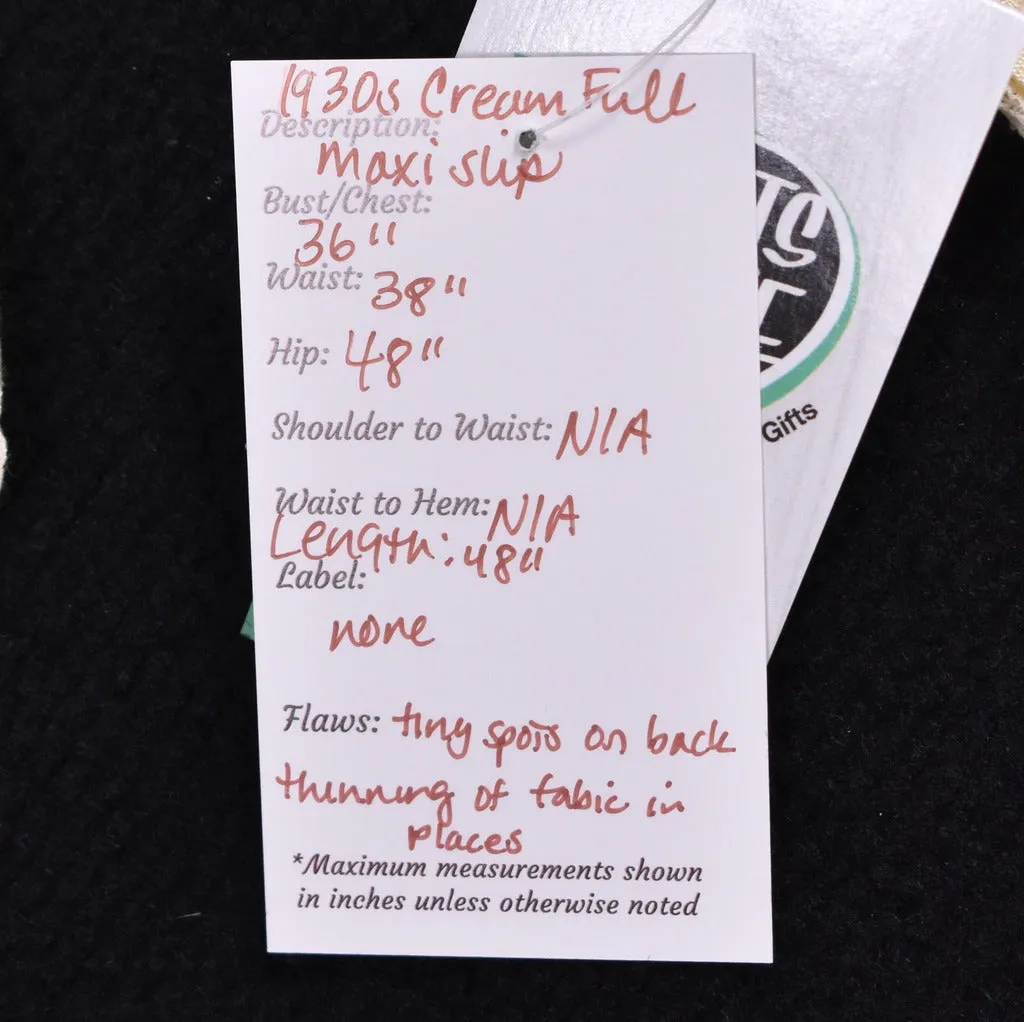 1930s Cream Full
Description:
maxi slip
Bust/Chest:
36"
Waist: 38"
Hip: 48"
Shoulder to Waist: N/A
Waist to Hem: N/A
Length: 48"
Label:
none
Flaws: tiny spots on back
thinning of fabic in
places
*Maximum measurements shown
in inches unless otherwise noted
Gifts